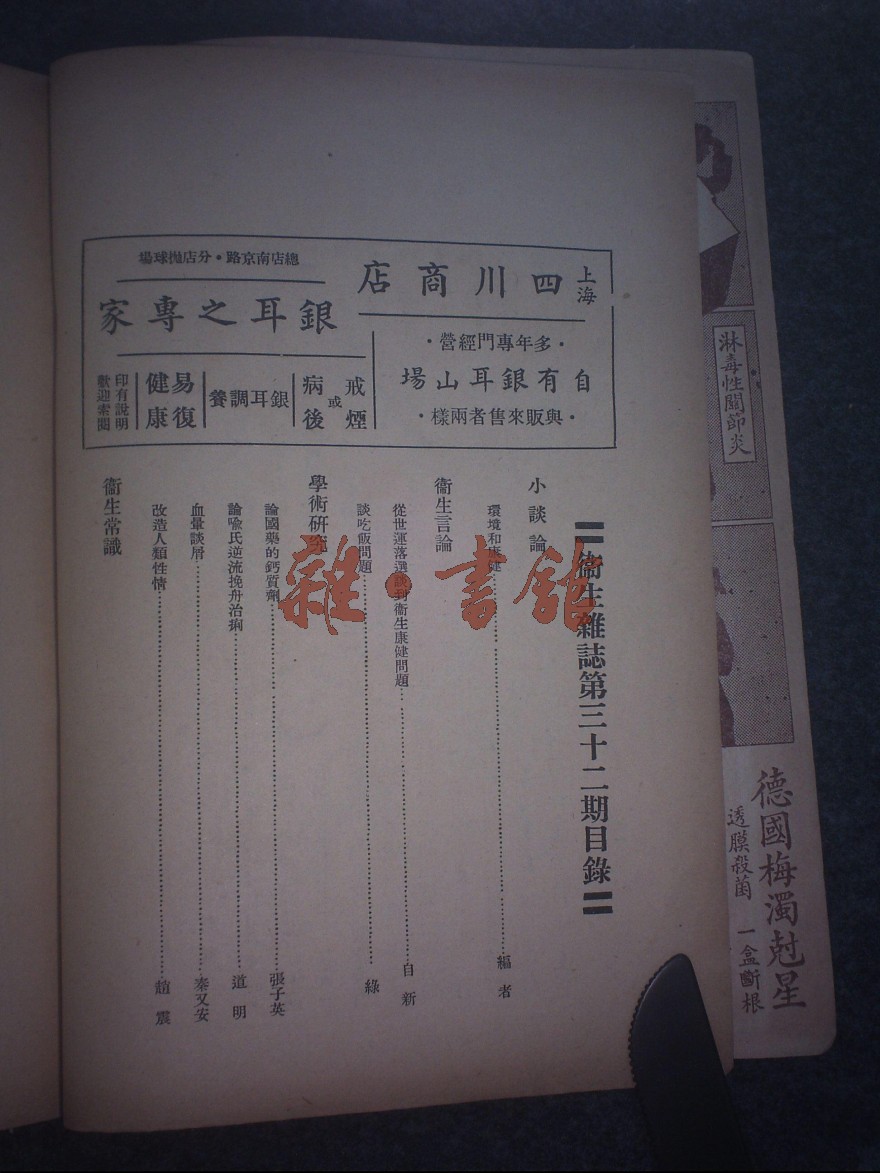 上海
四川商店
總店南京路·分店拋球場
銀耳之專家
·多年專門經營·
自有銀耳山場
·與販來售者兩樣·
戒煙
或
病後
銀耳調養
易復
健康
印有說明
歡迎索閱
衞生雜誌第三十二期目錄
小談論
環境和康健 編者
衞生言論
從世運落選談到衞生康健問題 自新
談吃飯問題 綠
學術研究
論國藥的鈣質劑 張子英
論喩氏逆流挽舟治痢 道明
血暈談屑 秦又安
改造人類性情 趙震
衞生常識
雜·書館
淋毒性關節炎
德國梅濁尅星
透膜殺菌 一盒斷根